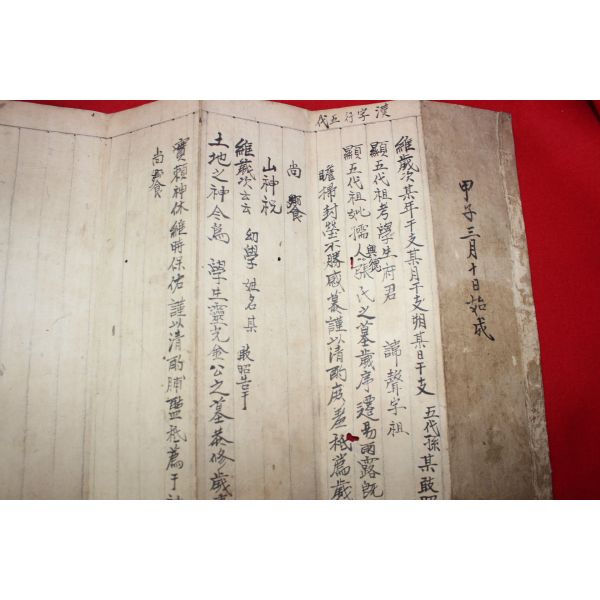 甲子三月十日始成
漢字行五代
維歲次某年干支某月干支朔某日干支 五代孫某敢昭
顯五代祖考學生府君 諱聲字祖
顯五代祖妣孺人興德張氏之墓歲序遷易雨露旣
瞻掃封塋不勝感慕謹以清酌庶羞祗薦歲
尚饗
山神祝
維歲次云云 幼學 姓名某 敢昭告于
土地之神今爲 學生靈光金公之墓恭修歲
寶賴神休維時保佑 謹以清酌脯醢祗薦于
尚饗